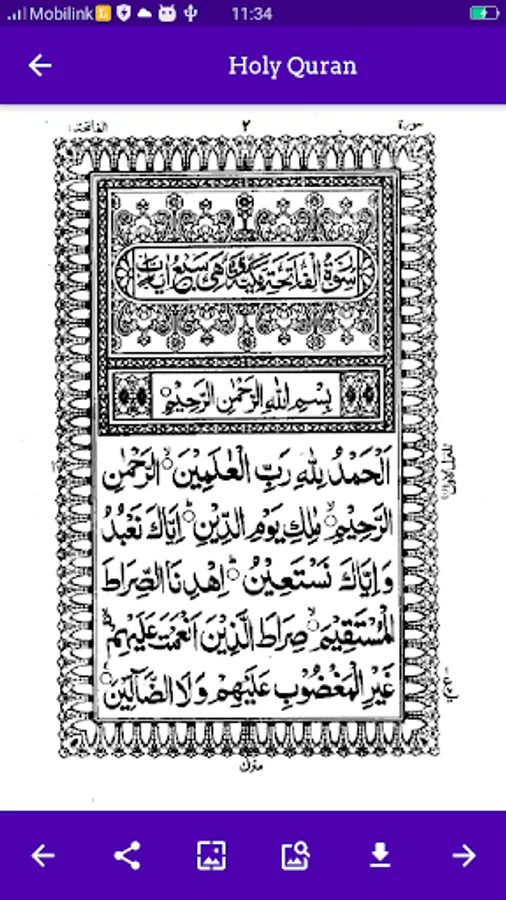 Mobilink 11:34
Holy Quran
سورة ٢ الفاتحة
سُوْرَةُ الْفَاتِحَةِ مَكِّيَّةٌ وَّهِيَ سَبْعُ اٰيَاتٍ
بِسْمِ اللّٰهِ الرَّحْمٰنِ الرَّحِيْمِ
اَلْحَمْدُ لِلّٰهِ رَبِّ الْعٰلَمِيْنَ ۙ الرَّحْمٰنِ
الرَّحِيْمِ ۙ مٰلِكِ يَوْمِ الدِّيْنِ ؕ اِيَّاكَ نَعْبُدُ
وَاِيَّاكَ نَسْتَعِيْنُ ؕ اِهْدِنَا الصِّرَاطَ
الْمُسْتَقِيْمَ ۙ صِرَاطَ الَّذِيْنَ اَنْعَمْتَ عَلَيْهِمْ ۙ
غَيْرِ الْمَغْضُوْبِ عَلَيْهِمْ وَلَا الضَّآلِّيْنَ
منزل